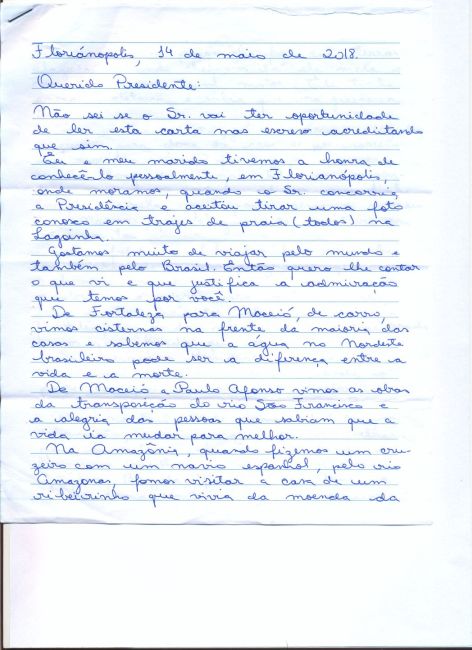 Florianópolis, 14 de maio de 2018.
Querido Presidente:
Não sei se o Sr. vai ter oportunidade
de ler esta carta mas escrevo acreditando
que sim.
Eu e meu marido tivemos a honra de
conhecê-lo pessoalmente, em Florianópolis,
onde moramos, quando o Sr. concorria
a Presidência e aceitou tirar uma foto
conosco em trajes de praia (todos) na
Lagoinha.
Gostamos muito de viajar pelo mundo e
também pelo Brasil. Então quero lhe contar
o que vi e que justifica a admiração
que temos por você!
De Fortaleza para Maceió, de carro,
vimos cisternas na frente da maioria das
casas e sabemos que a água no Nordeste
brasileiro pode ser a diferença entre a
vida e a morte.
De Maceió a Paulo Afonso vimos as obras
da transposição do rio São Francisco e
a alegria das pessoas que sabiam que a
vida ia mudar para melhor.
Na Amazônia, quando fizemos um cru-
zeiro com um navio espanhol, pelo rio
Amazonas, fomos visitar a casa de um
ribeirinho que vivia da moenda da